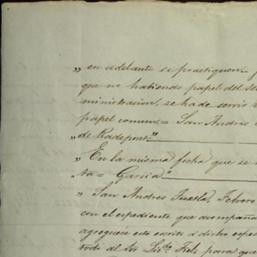 „ en adelante se practiquen
que no habiendo papel del
ministracion, se ha de servir
papel comun = San Andres
„ de Radepont"
„ En la misma fecha que se
ta = Garcia"
„ San Andres Tuxtla, Febrero
con el espediente que acompaña
agreguese este escrito á dicho espe
todo al Sr. para que